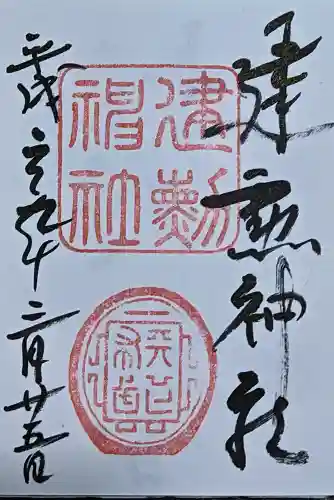 建勲神社
建勲
神社
平成二十九年二月廿五日